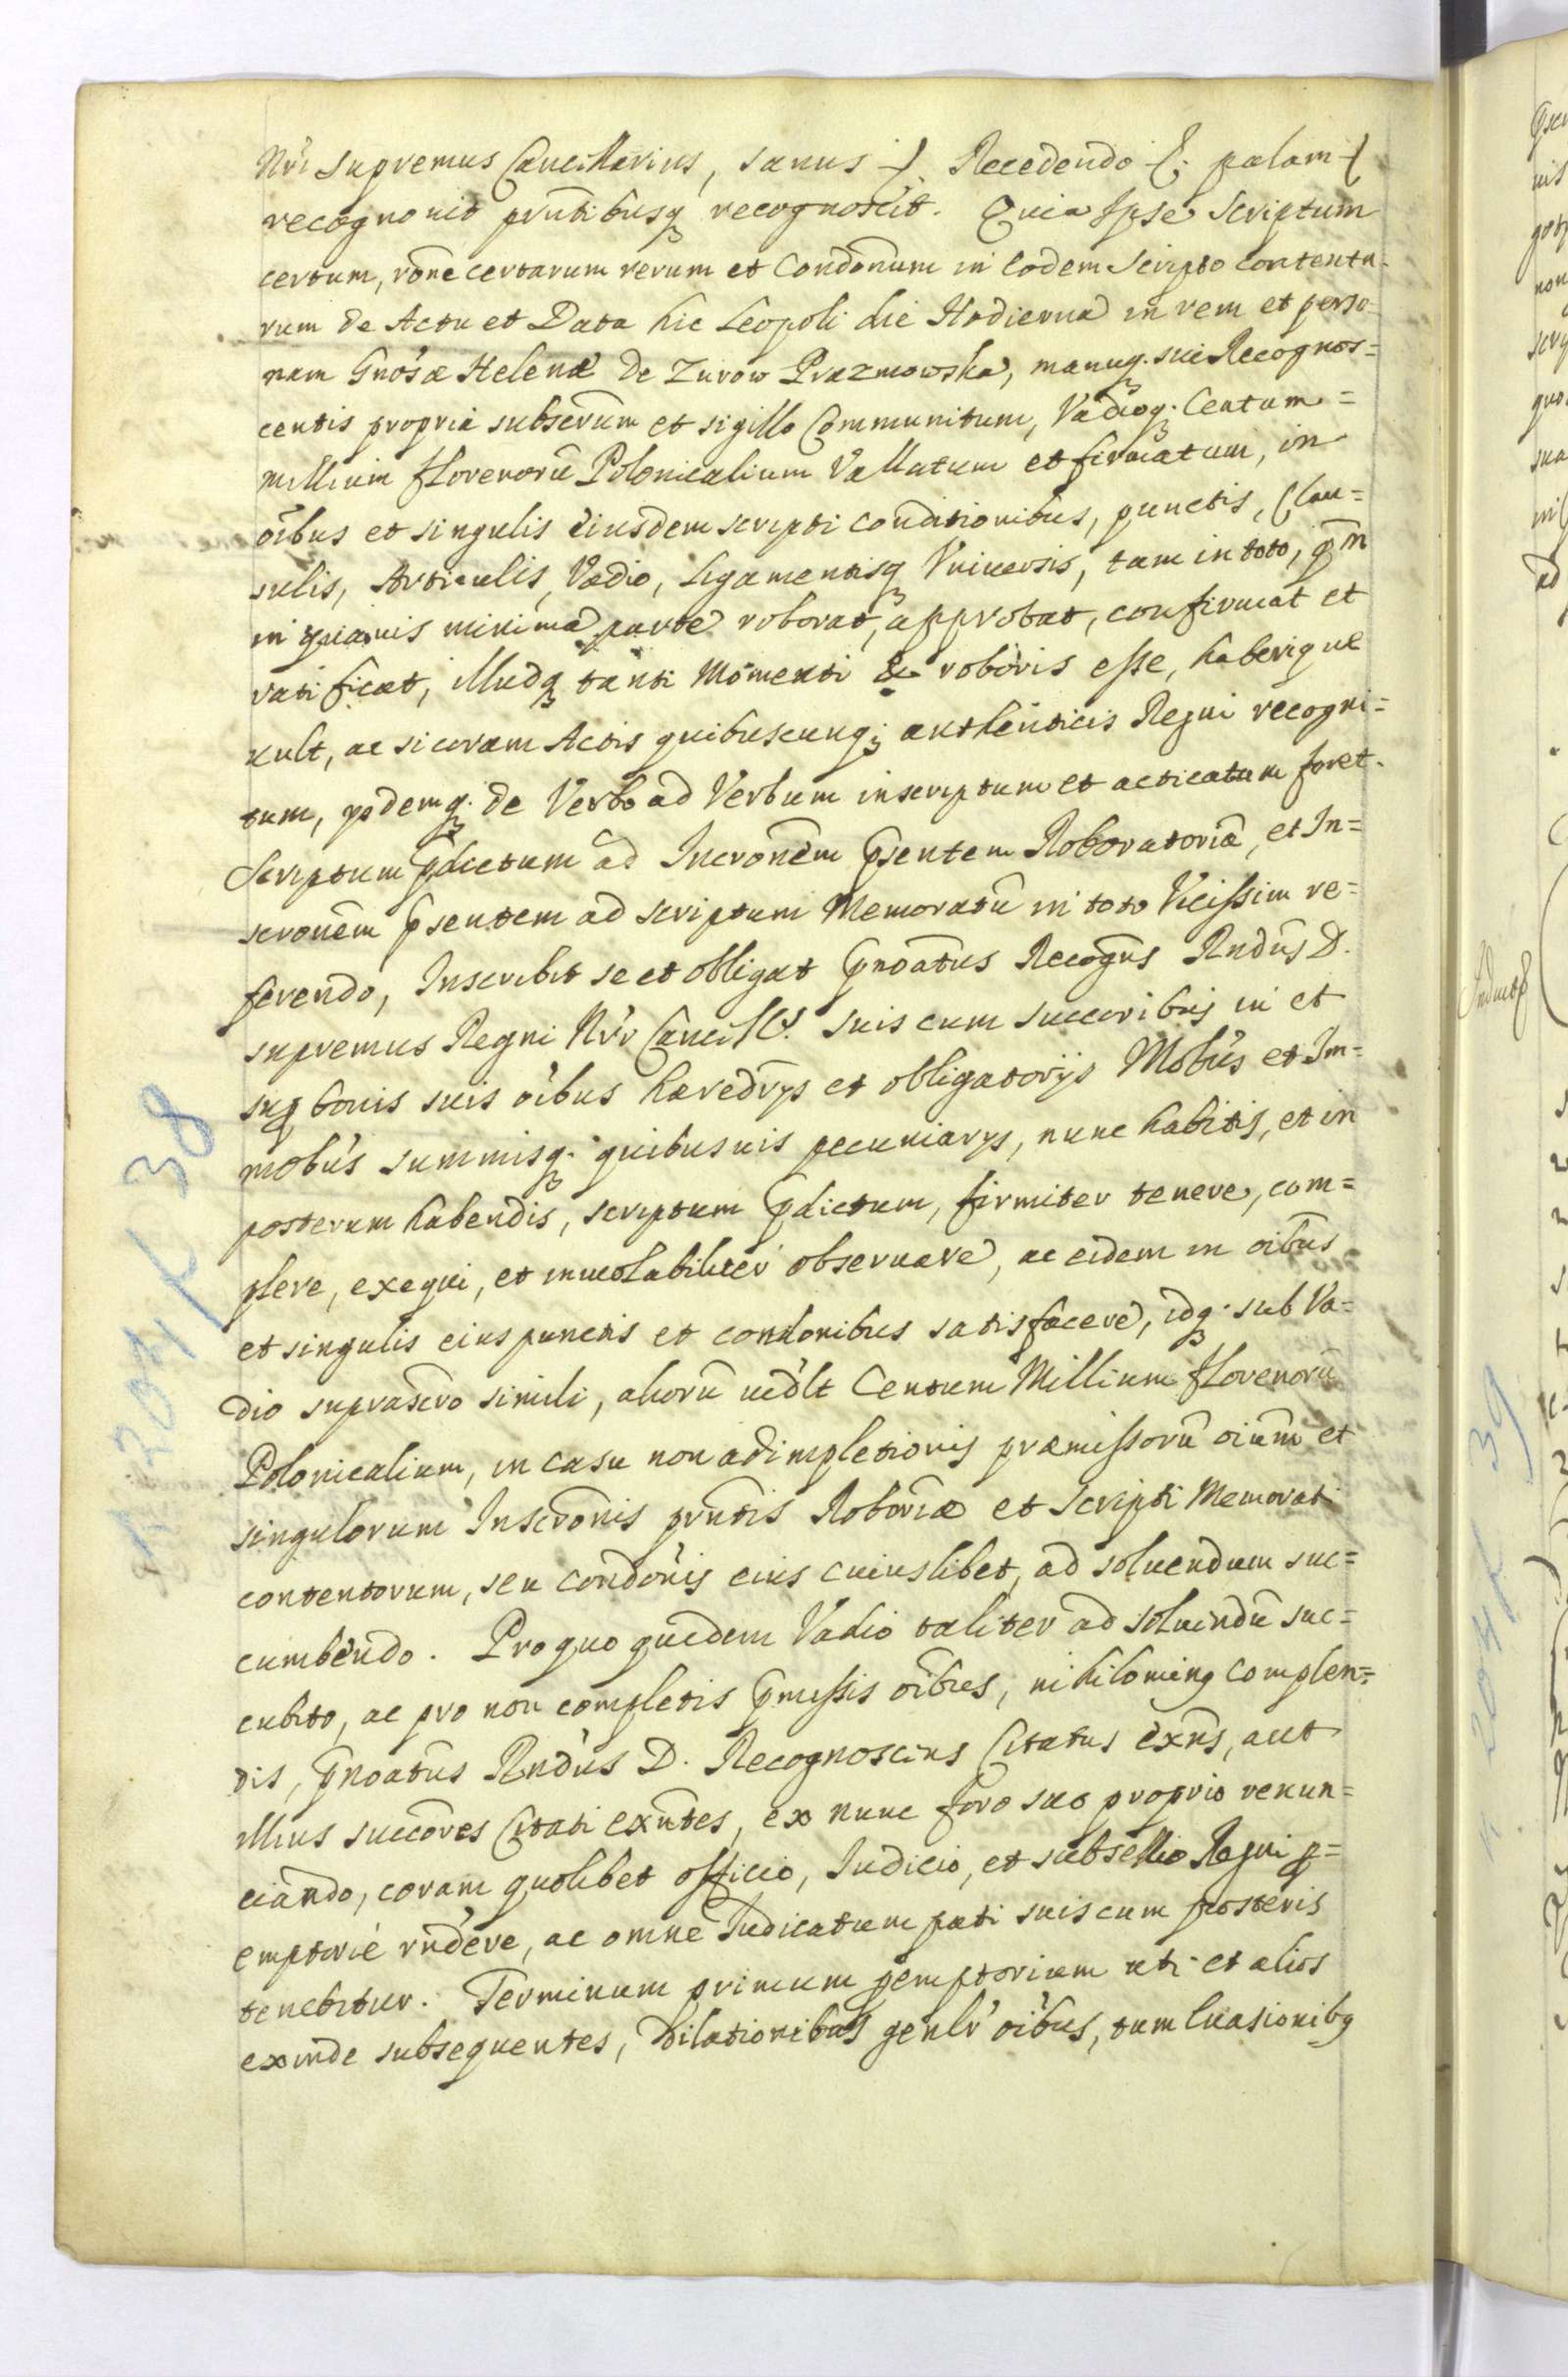 Nri supremus Cancellarius, sanus Recedendo palam
recognouit prntibusq recognoscit. Quia Ipse Scriptum
certum, rône certarum rerum et Condônum in eodem Scripto contenta-
rum de Actu et Data hic Leopoli die Hodierna in rem et perso-
nam Gnôsæ Helenæ de Zurow Prazmowska, manuq. sui Recognos=
centis propria subscrûm et sigillo Communitum, Vadioq. Centum=
millium flvorenorû Polonicalium Vallatum et firmatum, in
oîbus et singulis eiusdem scripti conditionibus, punctis, Clau=
sulis, Articulis, Vadio, Ligamentisq Vniuersis, tam in toto, qm
in quauis minima parte roborat, approbat, confirmat et
ratificat, illudq tanti momenti & roboris esse, haberique
uult, ac si coram Actis quibuscunq; authenticis Regni recogni=
tum, ysdemq. de Verbo ad Verbum inscriptum et acticatum foret.
Scriptum pdictum ad Inscronêm psentem Roboratoriâ, et In=
scronêm psentem ad scriptum Memoratû in toto Vicissim re=
ferendo, Inscribit se et obligat pnoâtus Recogns Rndûs D.
supremus Regni Nrr Cancill. suis cum succoribus in et
sup bonis suis oîbus hæredrys et obligatorijs Mobûs et Im=
mobûs summisq. quibusuis pecuniarys, nunc habitis, et in
posterum habendis, scriptum pdictum, firmiter tenere, com=
plere, exequi, et inuiolabiliter obseruare, ac eidem in oîbus
et singulis eius punctis et condonibus satisfacere, idq. sub Va=
dio suprascro simili, aliorû uidlt Centum Millium flvorenorû
Polonicalium, in casu non adimpletionis præmissorû oîum et
singulorum Inscronis prntis Roboriæ et scripti Memorati
contentorum, seu condonis eius cuiuslibet, ad soluendum suc=
cumbendo. Pro quo quidem Vadio taliter ad soluendû suc=
cubito, ac pro non completis pmissis oîbus, nihilominq complen=
dis, pnoâtus Rndûs D. Recognoscens Citatus exns, aut
illius succores Citati exntes, ex nunc foro suo proprio renun=
ciando, coram quolibet officio, Iudicio, et subsellio Regni p=
emptorie rndere, ac omne Iudicatum pati suis cum posteris
tenebitur. Terminum primum pemptorium uti et alios
exinde subsequentes, Dilationibus genlr oîbus, tum Euasionibq